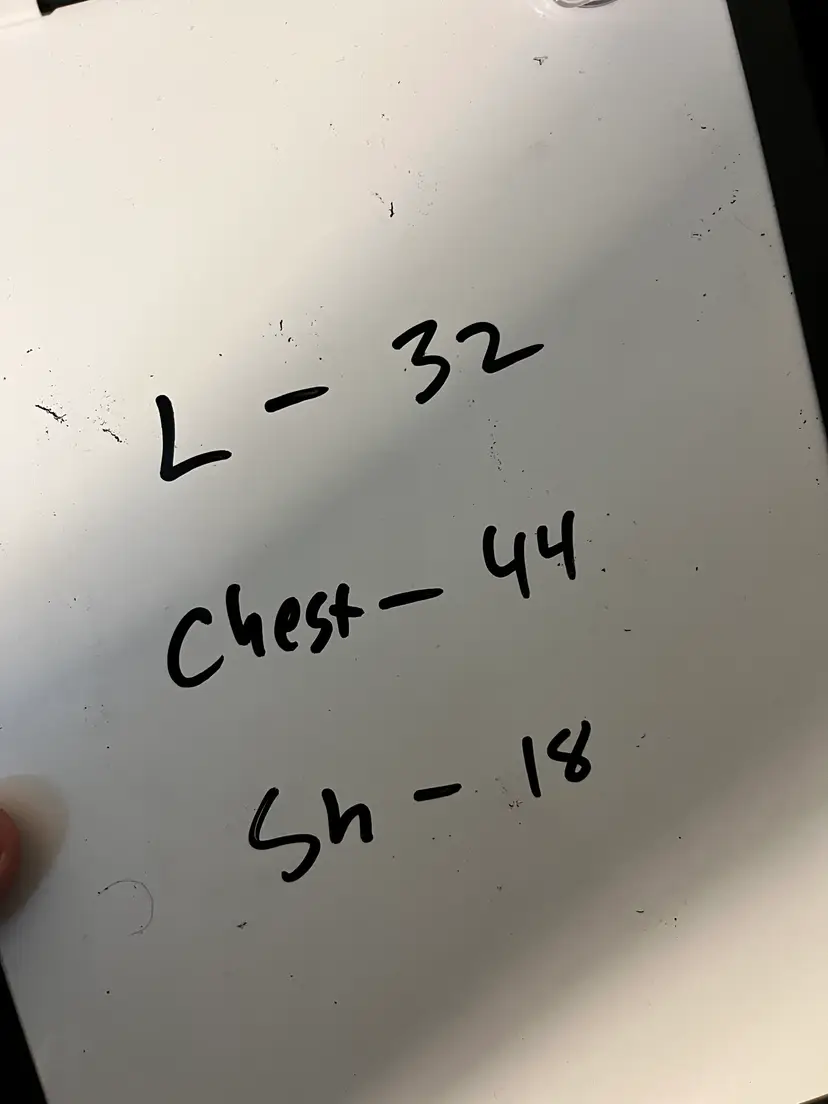 L - 32
Chest - 44
Sh - 18